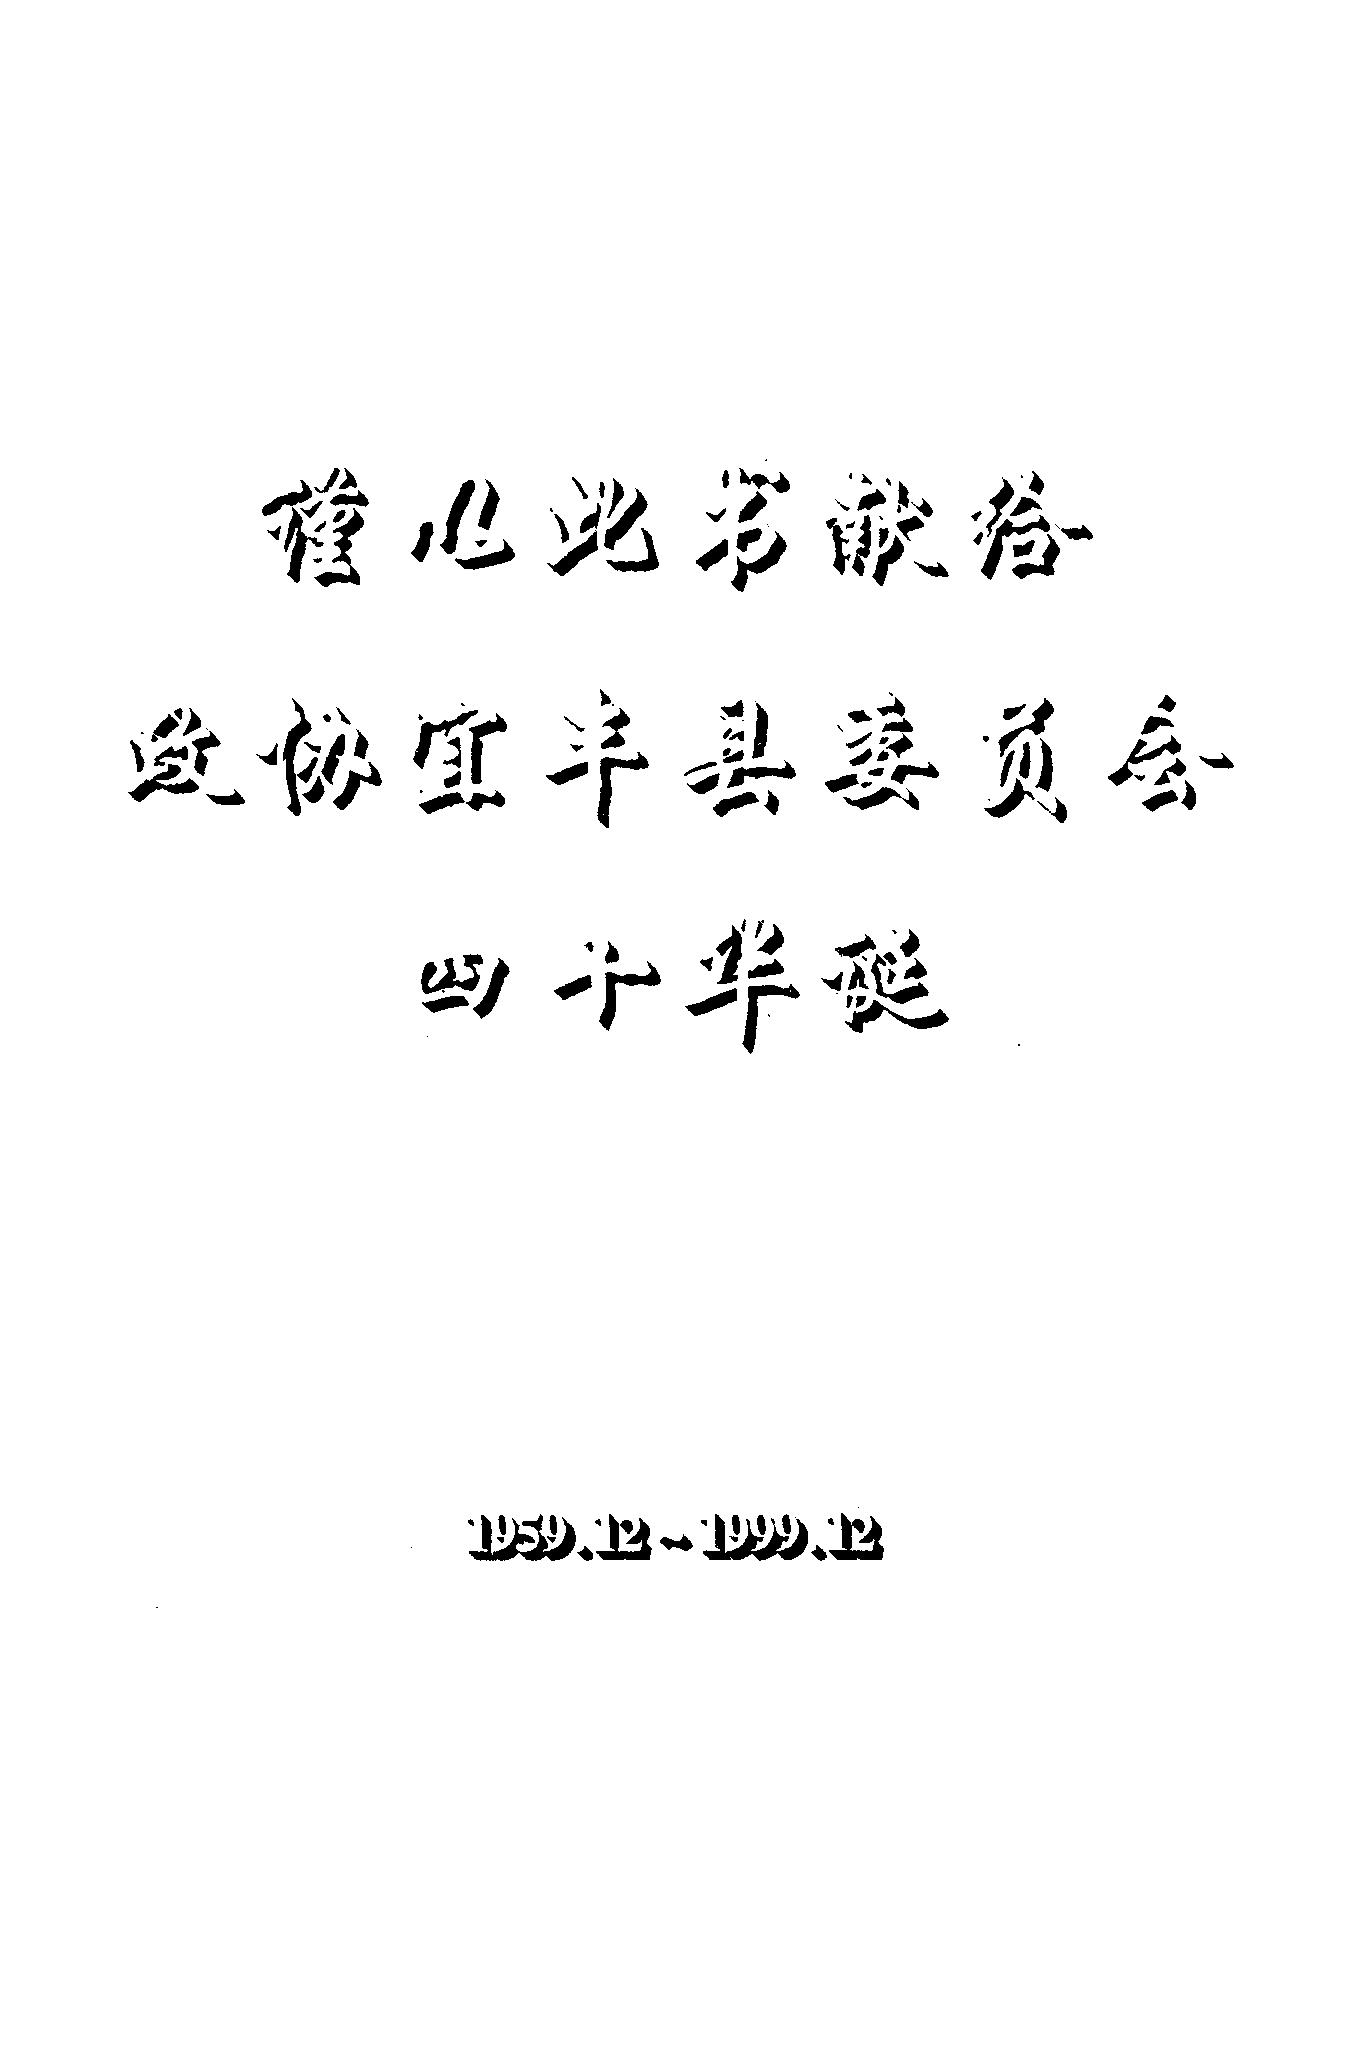 谨以此书献给
政协宜丰县委员会
四十华诞
1959.12~1999.12